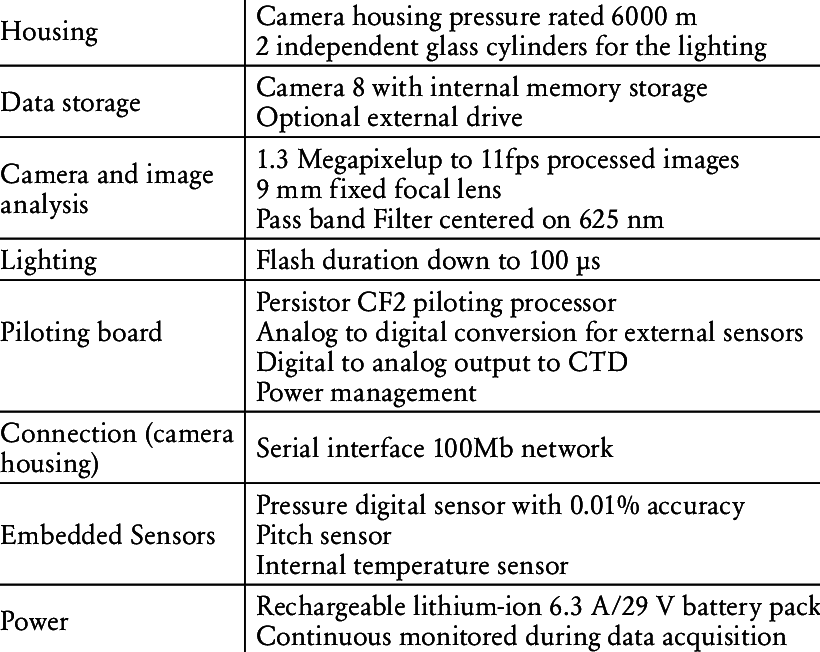 Housing
Camera housing pressure rated 6000 m
2 independent glass cylinders for the lighting
Data storage
Camera 8 with internal memory storage
Optional external drive
Camera and image
analysis
1.3 Megapixelup to 11fps processed images
9 mm fixed focal lens
Pass band Filter centered on 625 nm
Lighting
Flash duration down to 100 µs
Piloting board
Persistor CF2 piloting processor
Analog to digital conversion for external sensors
Digital to analog output to CTD
Power management
Connection (camera
housing)
Serial interface 100Mb network
Embedded Sensors
Pressure digital sensor with 0.01% accuracy
Pitch sensor
Internal temperature sensor
Power
Rechargeable lithium-ion 6.3 A/29 V battery pack
Continuous monitored during data acquisition